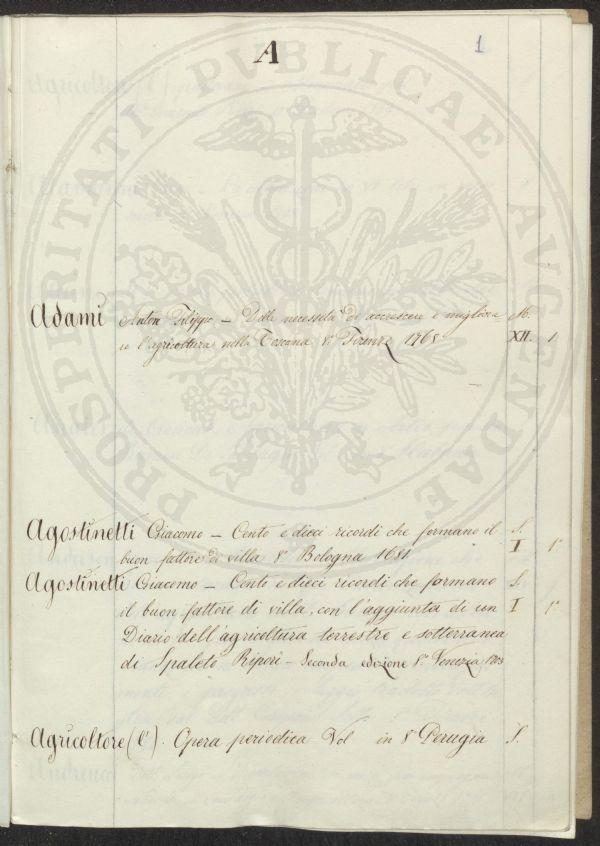 A
1
PROSPERITATI PVBLICAE AVGENDAE
Adami Anton Filippo — Della necessità di accrescere e migliora= M.
re l'agricoltura nella Toscana 8.° Firenze 1768 XII. 1
Agostinetti Giacomo — Cento e dieci ricordi che formano il S.
buon fattore di villa 8.° Bologna 1681 I 1°
Agostinetti Giacomo — Cento e dieci ricordi che formano S.
il buon fattore di villa, con l'aggiunta di un I 1°
Diario dell'agricoltura terrestre e sotterranea
di Spaleto Ripori — Seconda edizione 8.° Venezia 1703
Agricoltore (l'). Opera periodica Vol in 8.° Perugia S.